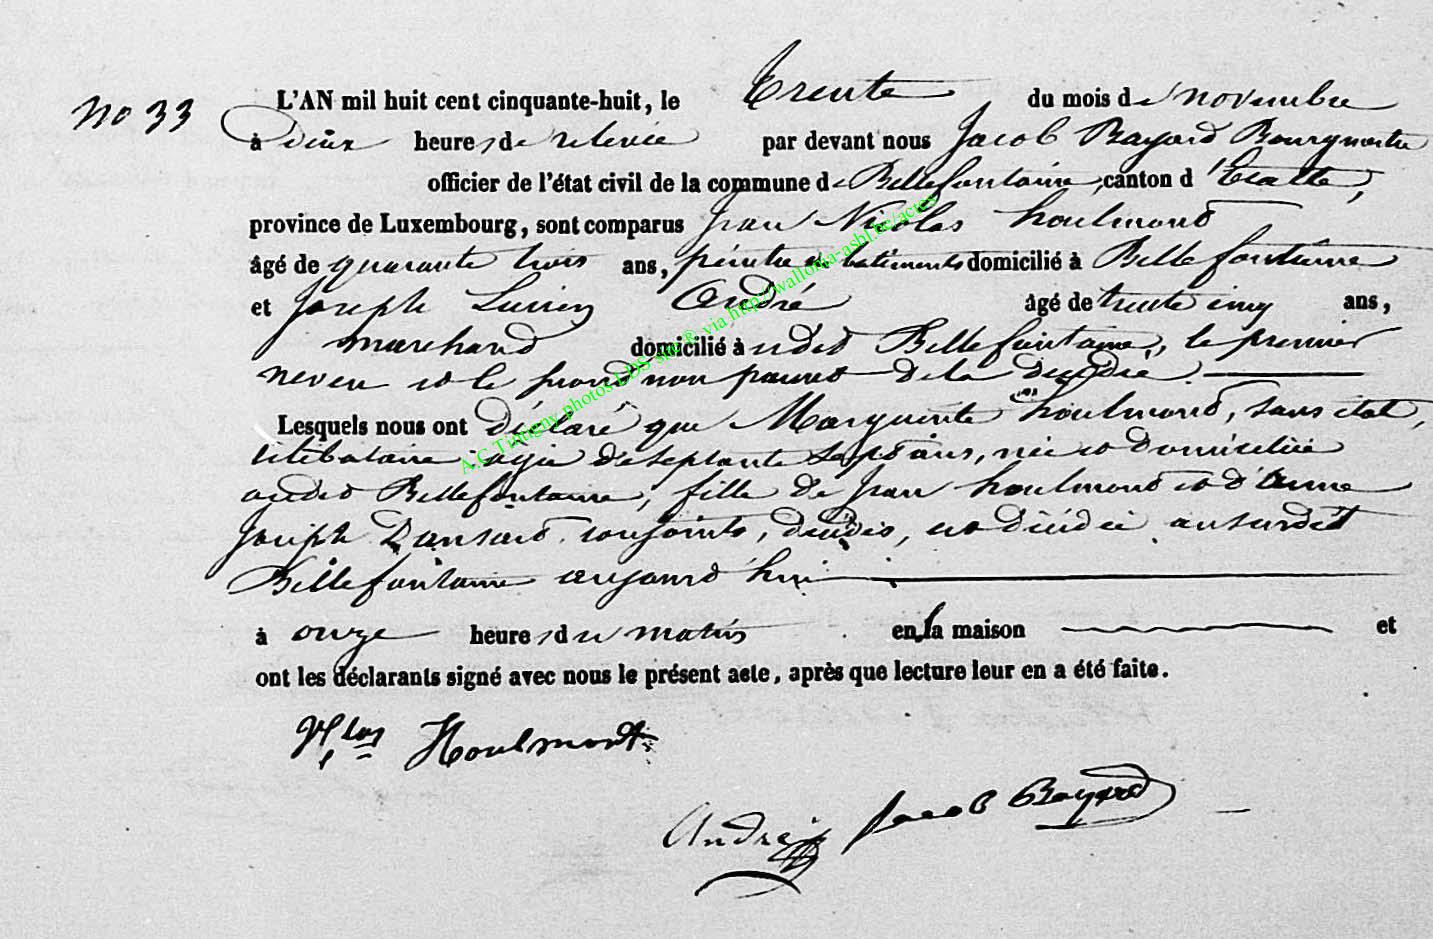 No 33
L'AN mil huit cent cinquante-huit, le Trente du mois de novembre
à deux heures de relevée par devant nous Jacob Bayard Bourgmestre
officier de l'état civil de la commune de Bellefontaine, canton d'Etalle,
province de Luxembourg, sont comparus Jean Nicolas houlmond
âgé de quarante trois ans, peintre en batiments domicilié à Bellefontaine
et Joseph Lucien André âgé de trente cinq ans,
marchand domicilié à udit Bellefontaine, le premier
neveu et le second non parent de la décédée.
Lesquels nous ont déclaré que Marguerite houlmond, sans état,
célibataire agée de septante sept ans, née et domiciliée
audit Bellefontaine, fille de Jean houlmond et d'anne
Joseph Lansard conjoints, décédés, est décédée au susdit
Bellefontaine aujourd'hui
à onze heures du matin en sa maison et
ont les déclarants signé avec nous le présent acte, après que lecture leur en a été faite.
Houlmont
André Jacob Bayard
A.C Tintigny photos LDS site ® via http://wallonia-asbl.be/actes